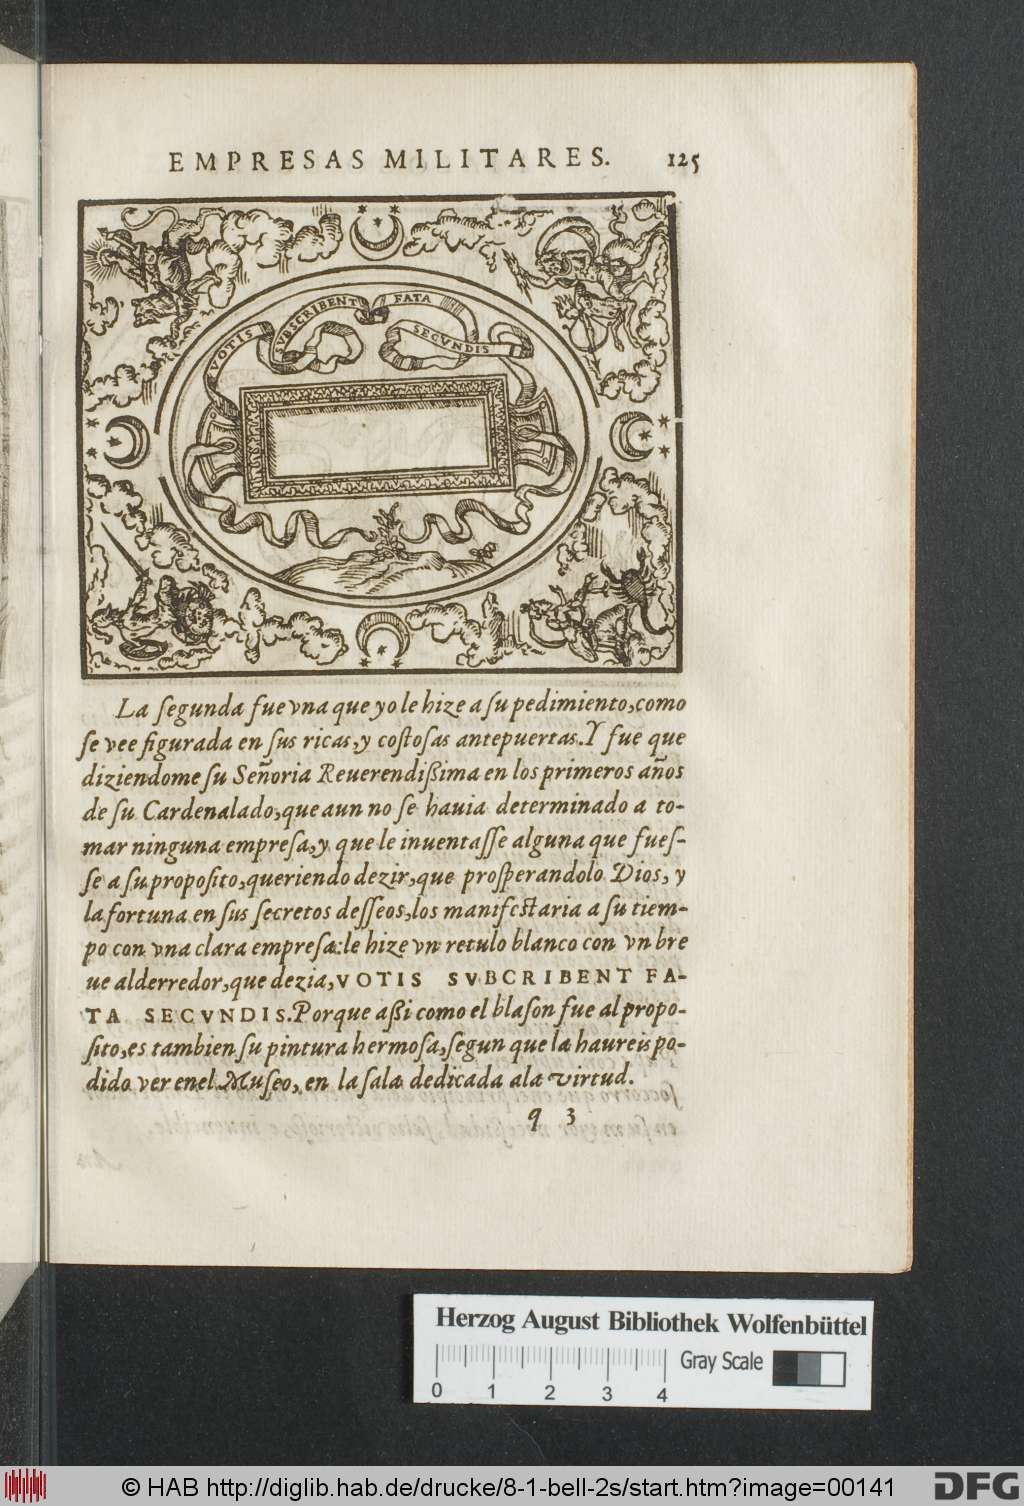 EMPRESAS MILITARES. 125
VOTIS SVBSCRIBENT FATA
SECVNDIS
La ſegunda fue vna que yo le hize a ſu pedimiento, como
ſe vee figurada en ſus ricas, y coſtoſas antepuertas. Y fue que
diziendome ſu Señoria Reuerendißima en los primeros años
de ſu Cardenalado, que aun no ſe hauia determinado a to-
mar ninguna empreſa, y que le inuentaſſe alguna que fueſ-
ſe a ſu propoſito, queriendo dezir, que proſperandolo Dios, y
la fortuna en ſus ſecretos deſſeos, los manifeſtaria a ſu tiem-
po con vna clara empreſa: le hize vn retulo blanco con vn bre
ue alderredor, que dezia, VOTIS SVBCRIBENT FA-
TA SECVNDIS. Porque aßi como el blaſon fue al propo-
ſito, es tambien ſu pintura hermoſa, ſegun que la haureis po-
dido ver enel Muſeo, en la ſala dedicada ala virtud.
q 3
Herzog August Bibliothek Wolfenbüttel
Gray Scale
0 1 2 3 4
© HAB http://diglib.hab.de/drucke/8-1-bell-2s/start.htm?image=00141
DFG